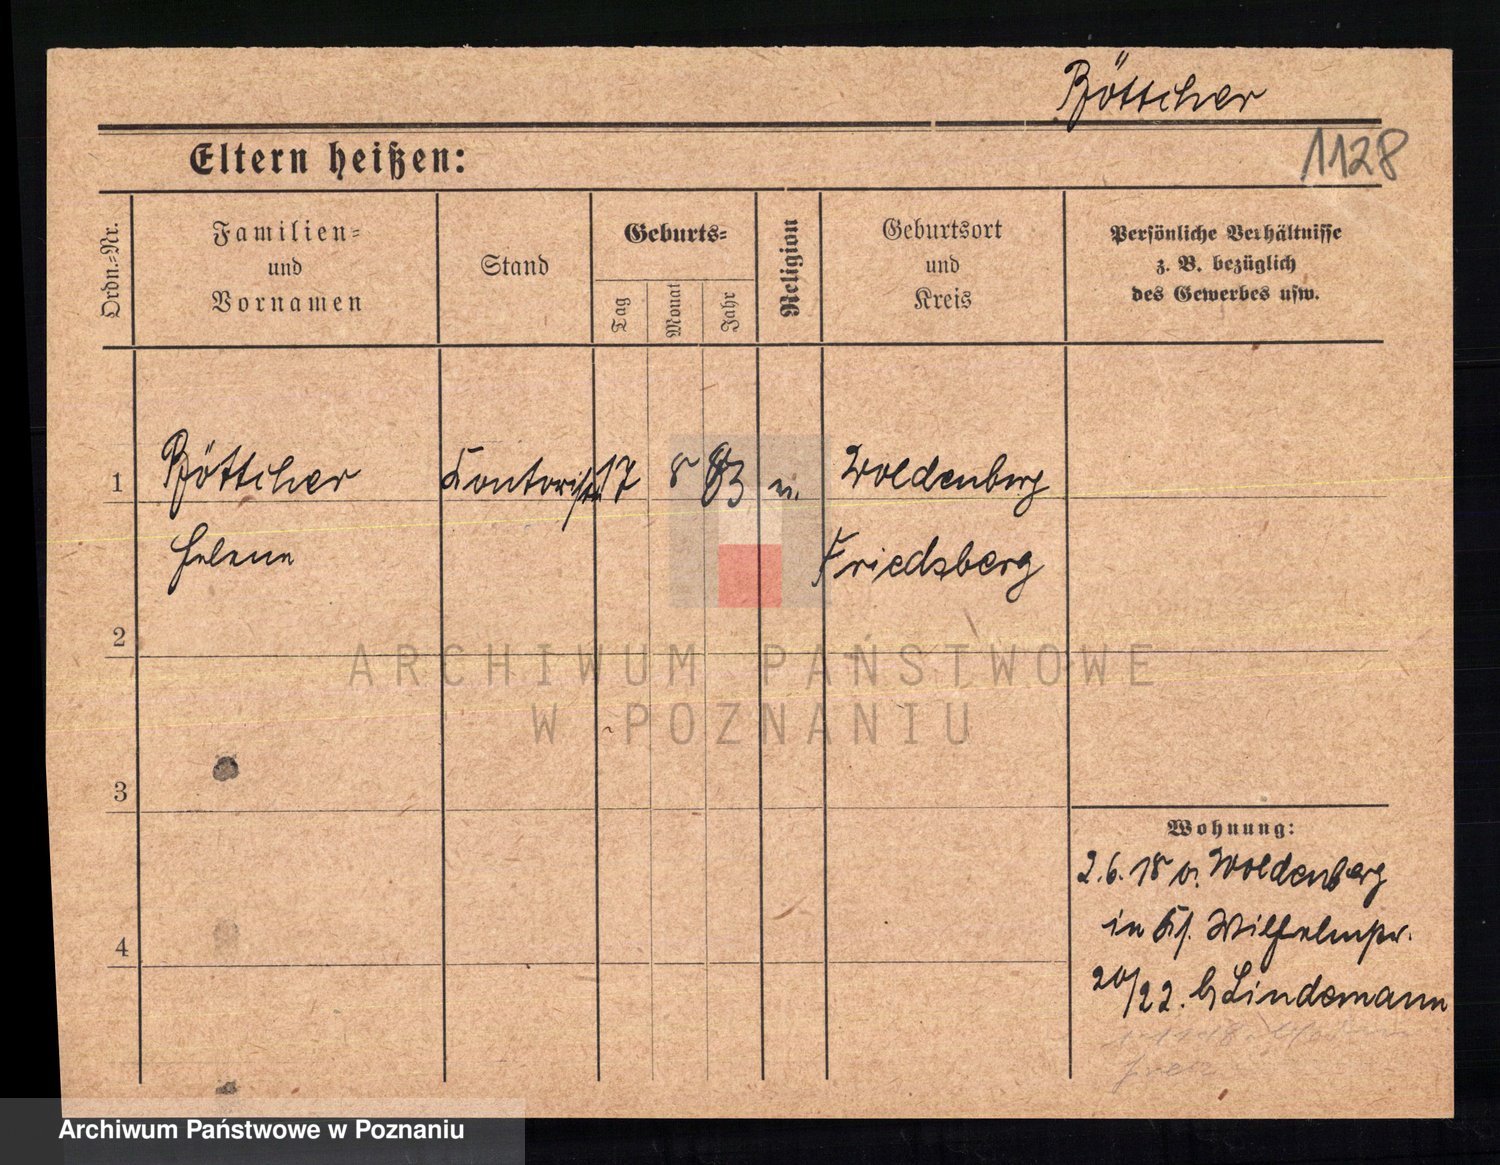 Böttcher
1128
Eltern heißen:
Ordn.-Nr.
Familien-
und
Vornamen
Stand
Geburts-
Tag
Monat
Jahr
Religion
Geburtsort
und
Kreis
Persönliche Verhältnisse
z. B. bezüglich
des Gewerbes usw.
1
Böttcher
Kontoristin
17
8
83
Woldenberg
Helene
Friedeberg
2
ARCHIWUM PAŃSTWOWE
W POZNANIU
3
Wohnung:
2.6.18 v. Woldenberg
in Wilhelmstr.
4
20/22. b Lindemann
Archiwum Państwowe w Poznaniu